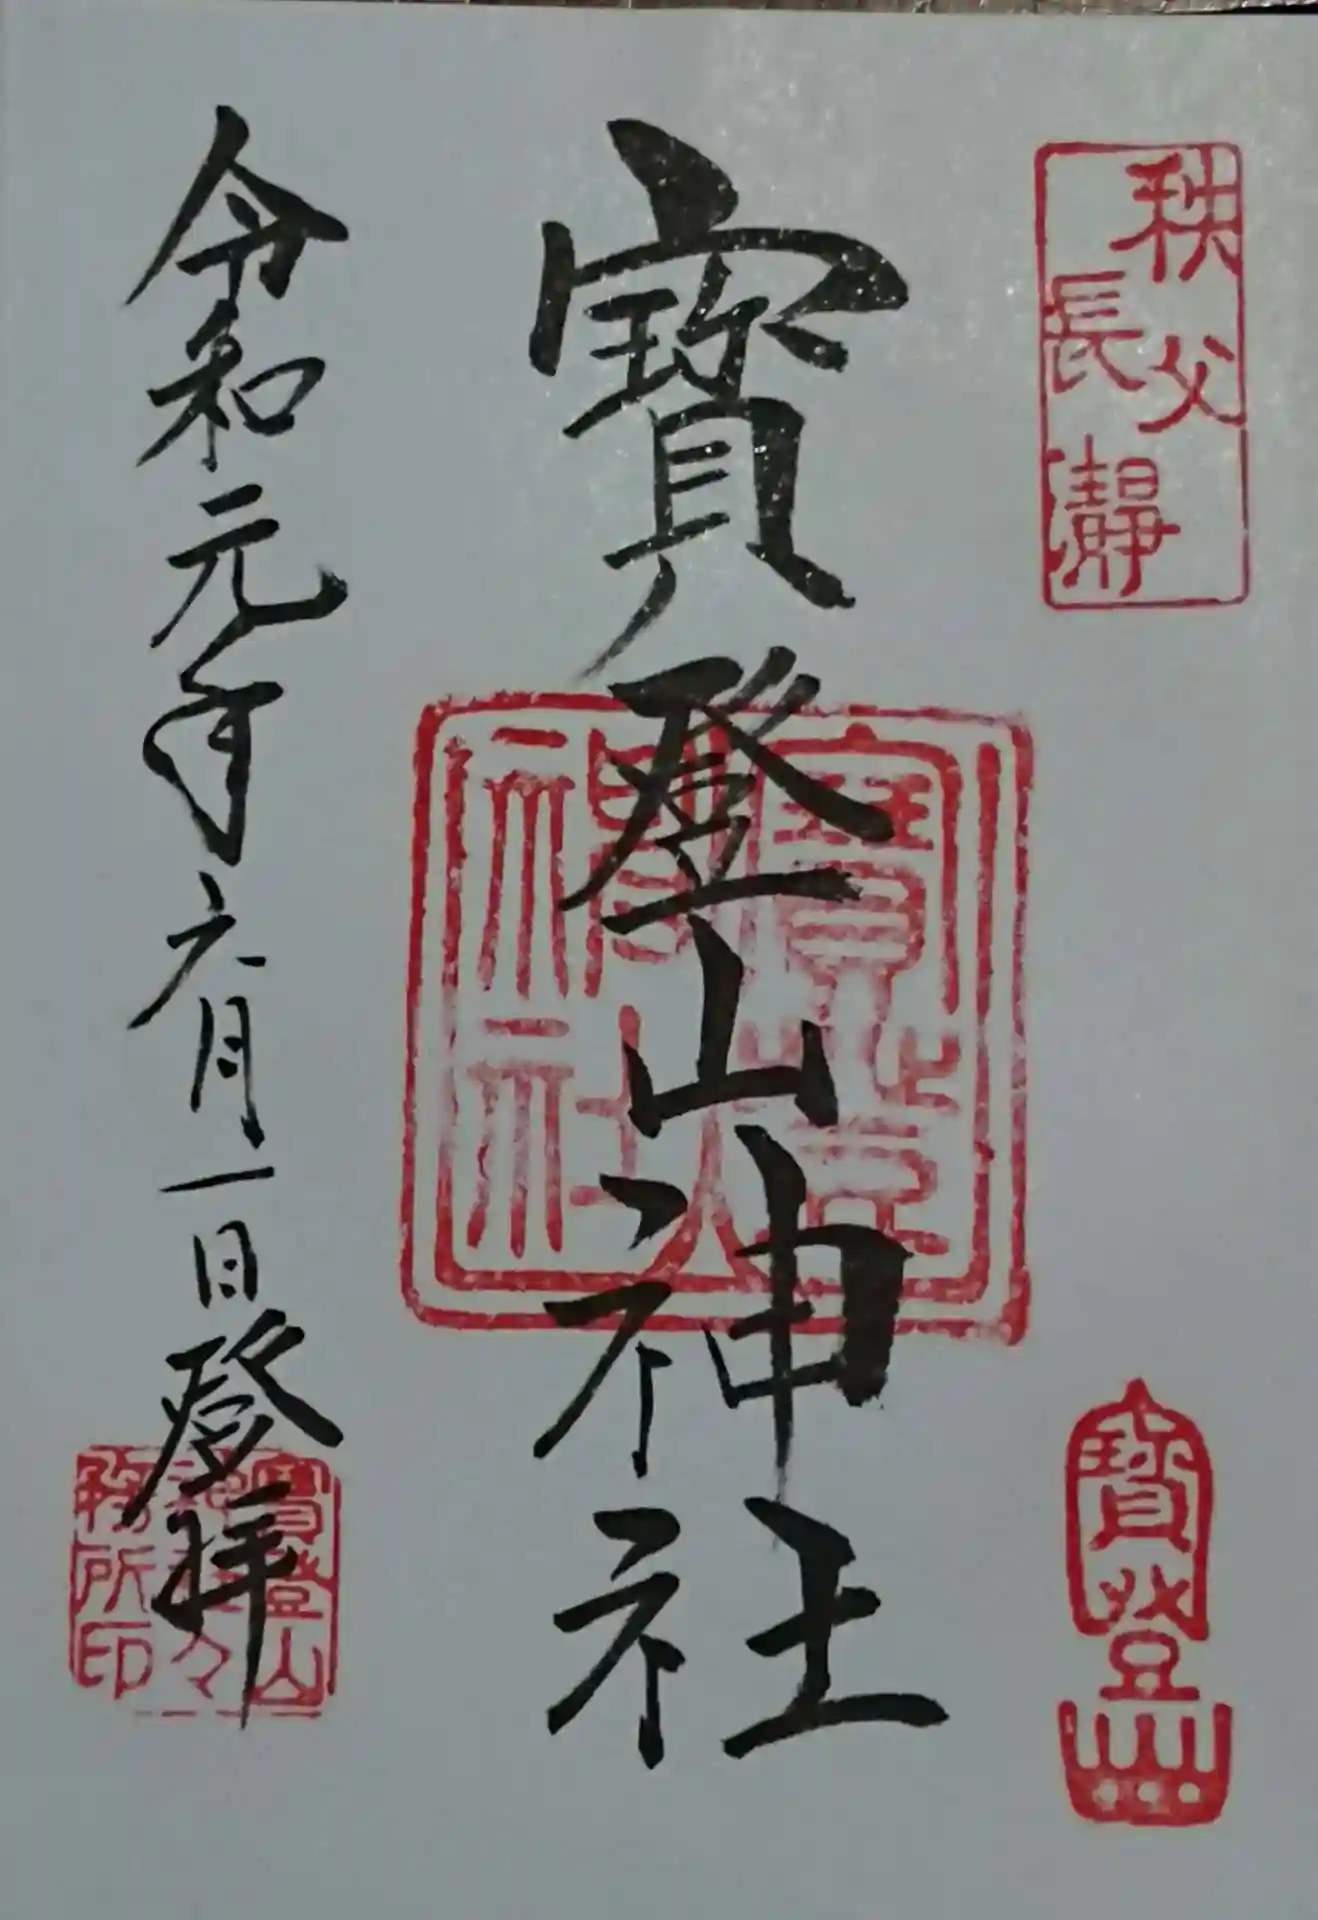 秩父
長瀞
寶登山
寶登山神社
寶登山神社
令和元年六月一日登拝
寶登山
神社々
務所印